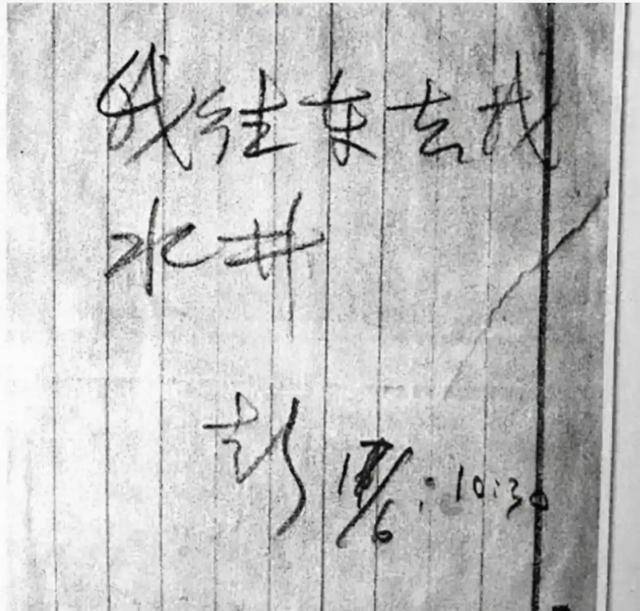 我往东去找
水井
彭 17/6: 10:30